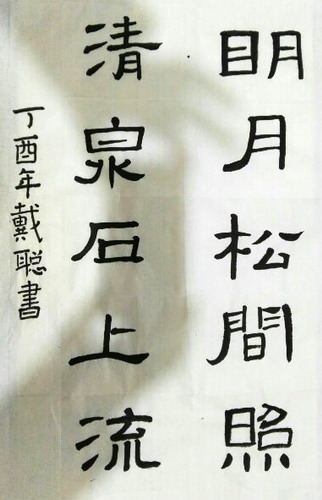 明月松間照
清泉石上流
丁酉年戴聪書